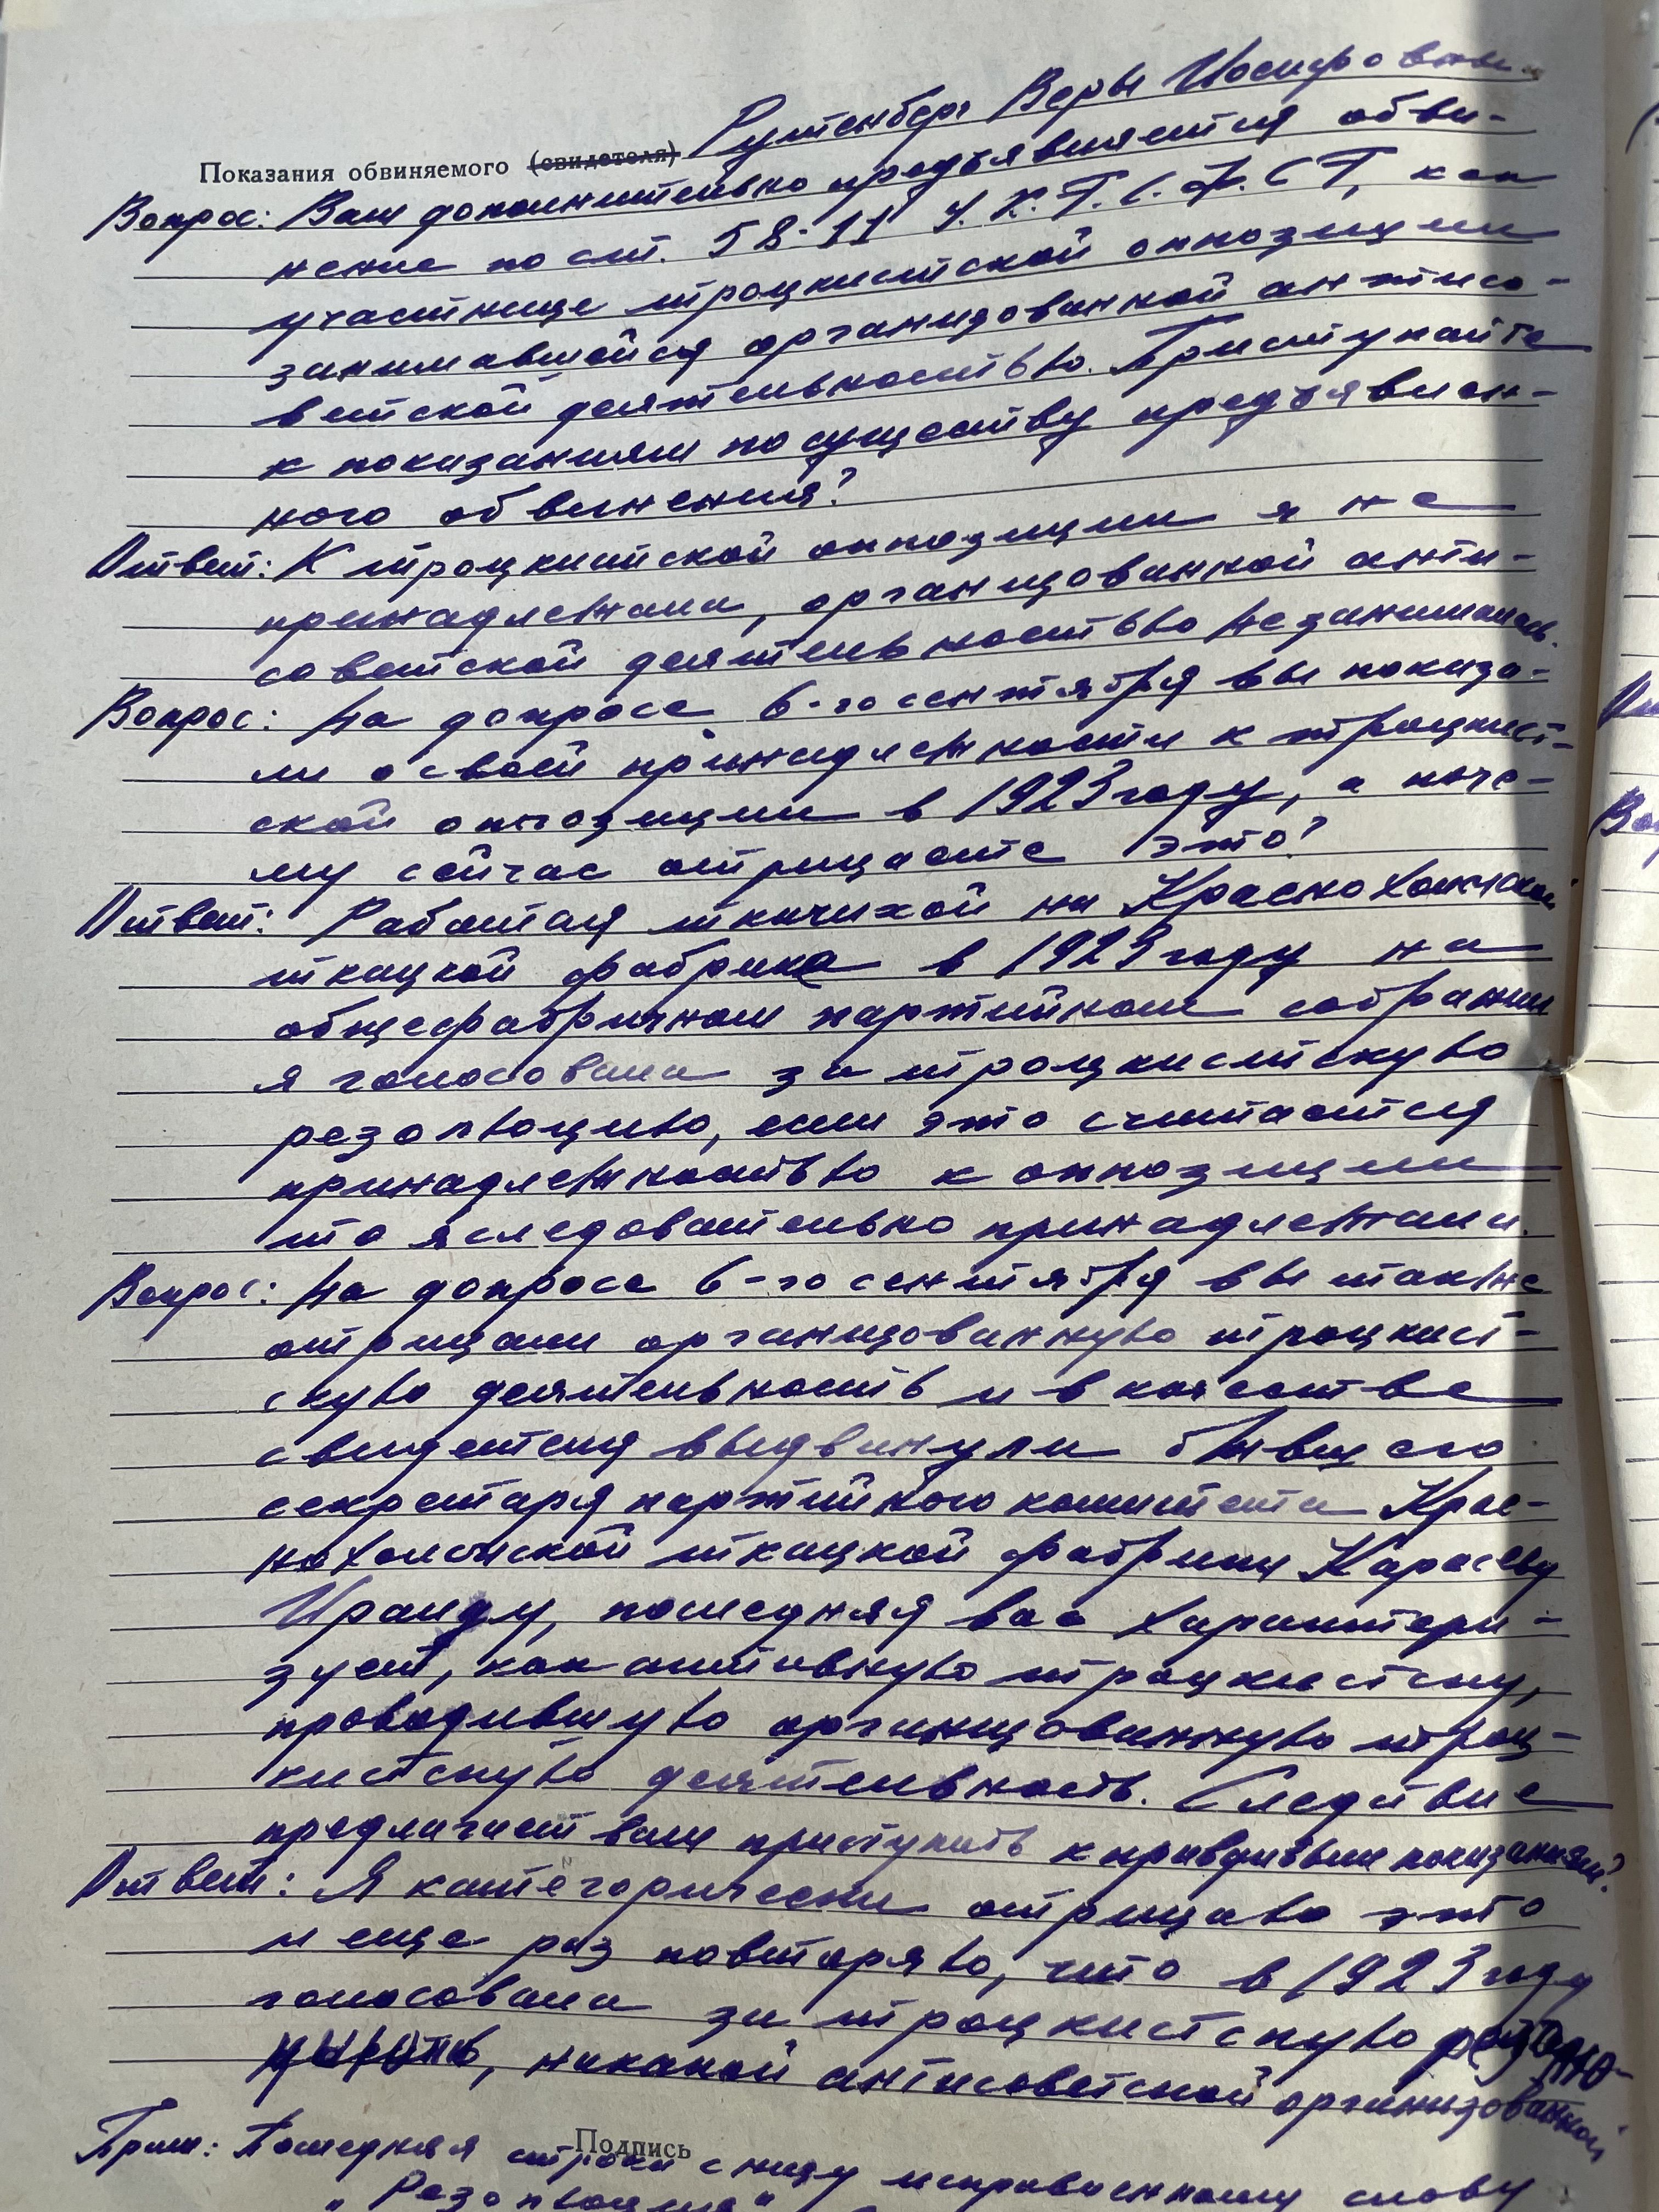 Показания обвиняемого (свидетеля) Рутенберг Веры Иосифовны
Вопрос: Вам дополнительно предъявляется обви-
нение по ст. 58-11 У.К.Р.С.Ф.С.Р, как
участнице троцкистской оппозиции
занимавшейся организованной антисо-
ветской деятельностью. Приступайте
к показаниям по существу предъявлен-
ного обвинения?
Ответ: К троцкистской оппозиции я не
принадлежала, организованной анти-
советской деятельностью не занималась.
Вопрос: На допросе 6-го сентября вы показа-
ли о своей принадлежности к троцкист-
ской оппозиции в 1923 году, а поче-
му сейчас отрицаете это?
Ответ: Работая ткачихой на Краснохолмской
ткацкой фабрике в 1923 году на
общефабричном партийном собрании
я голосовала за троцкистскую
резолюцию, если это считается
принадлежностью к оппозиции
то я следовательно принадлежала.
Вопрос: На допросе 6-го сентября вы также
отрицали организованную троцкист-
скую деятельность и в качестве
свидетеля выдвинули бывшего
секретаря партийного комитета Крас-
нохолмской ткацкой фабрики Карасеву
Ираиду, последняя вас характери-
зует, как активную троцкистку,
проводившую организованную троц-
кистскую деятельность. Следствие
предлагает вам приступить к правдивым показаниям?
Ответ: Я категорически отрицаю это
и еще раз повторяю, что в 1923 году
голосовала за троцкистскую резолю-
цию, никакой антисоветской организованной
Подпись
Прим: Последняя строка снизу исправленному слову
"Резолюция"